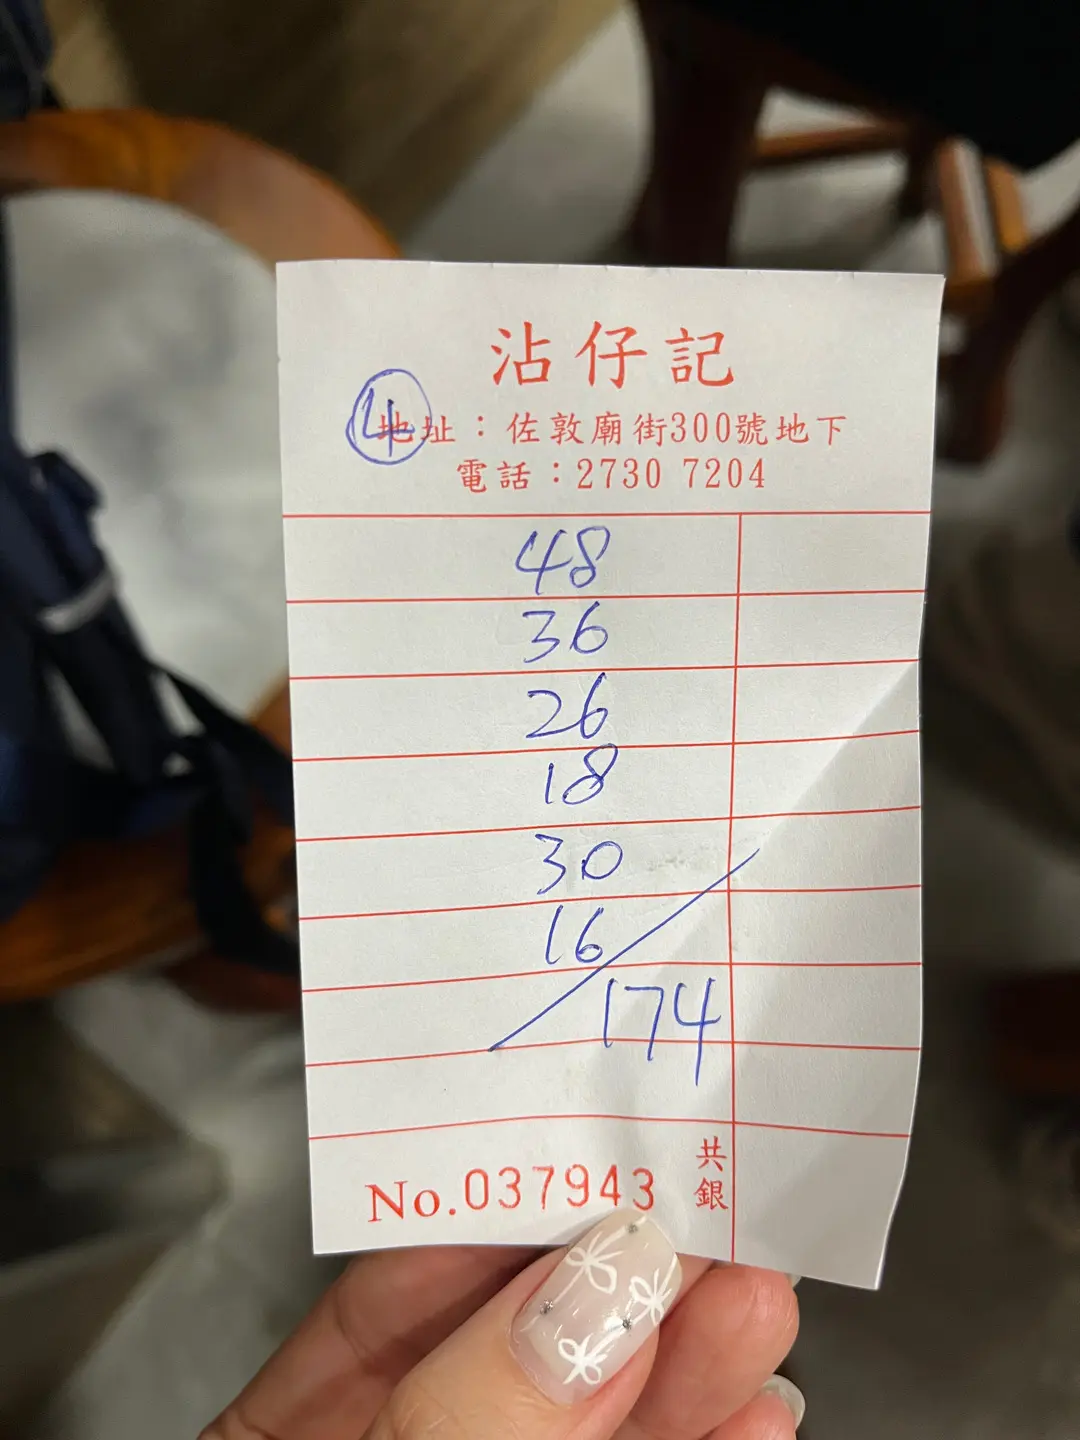 沾仔記
④
地址：佐敦廟街300號地下
電話：2730 7204
48
36
26
18
30
16
174
No.037943
共銀